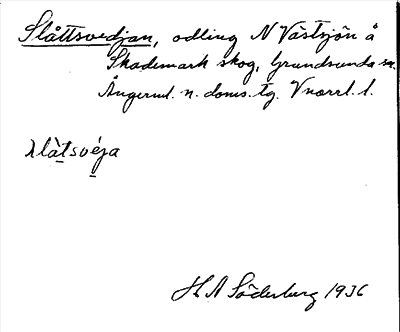 Slåttsvedjan, odling N Västsjön å
Skademark skog, Grundsunda sn.
Ångerml. n. doms. tg. Vnorrl. l.
slàtsvéja
H. A Söderberg 1936